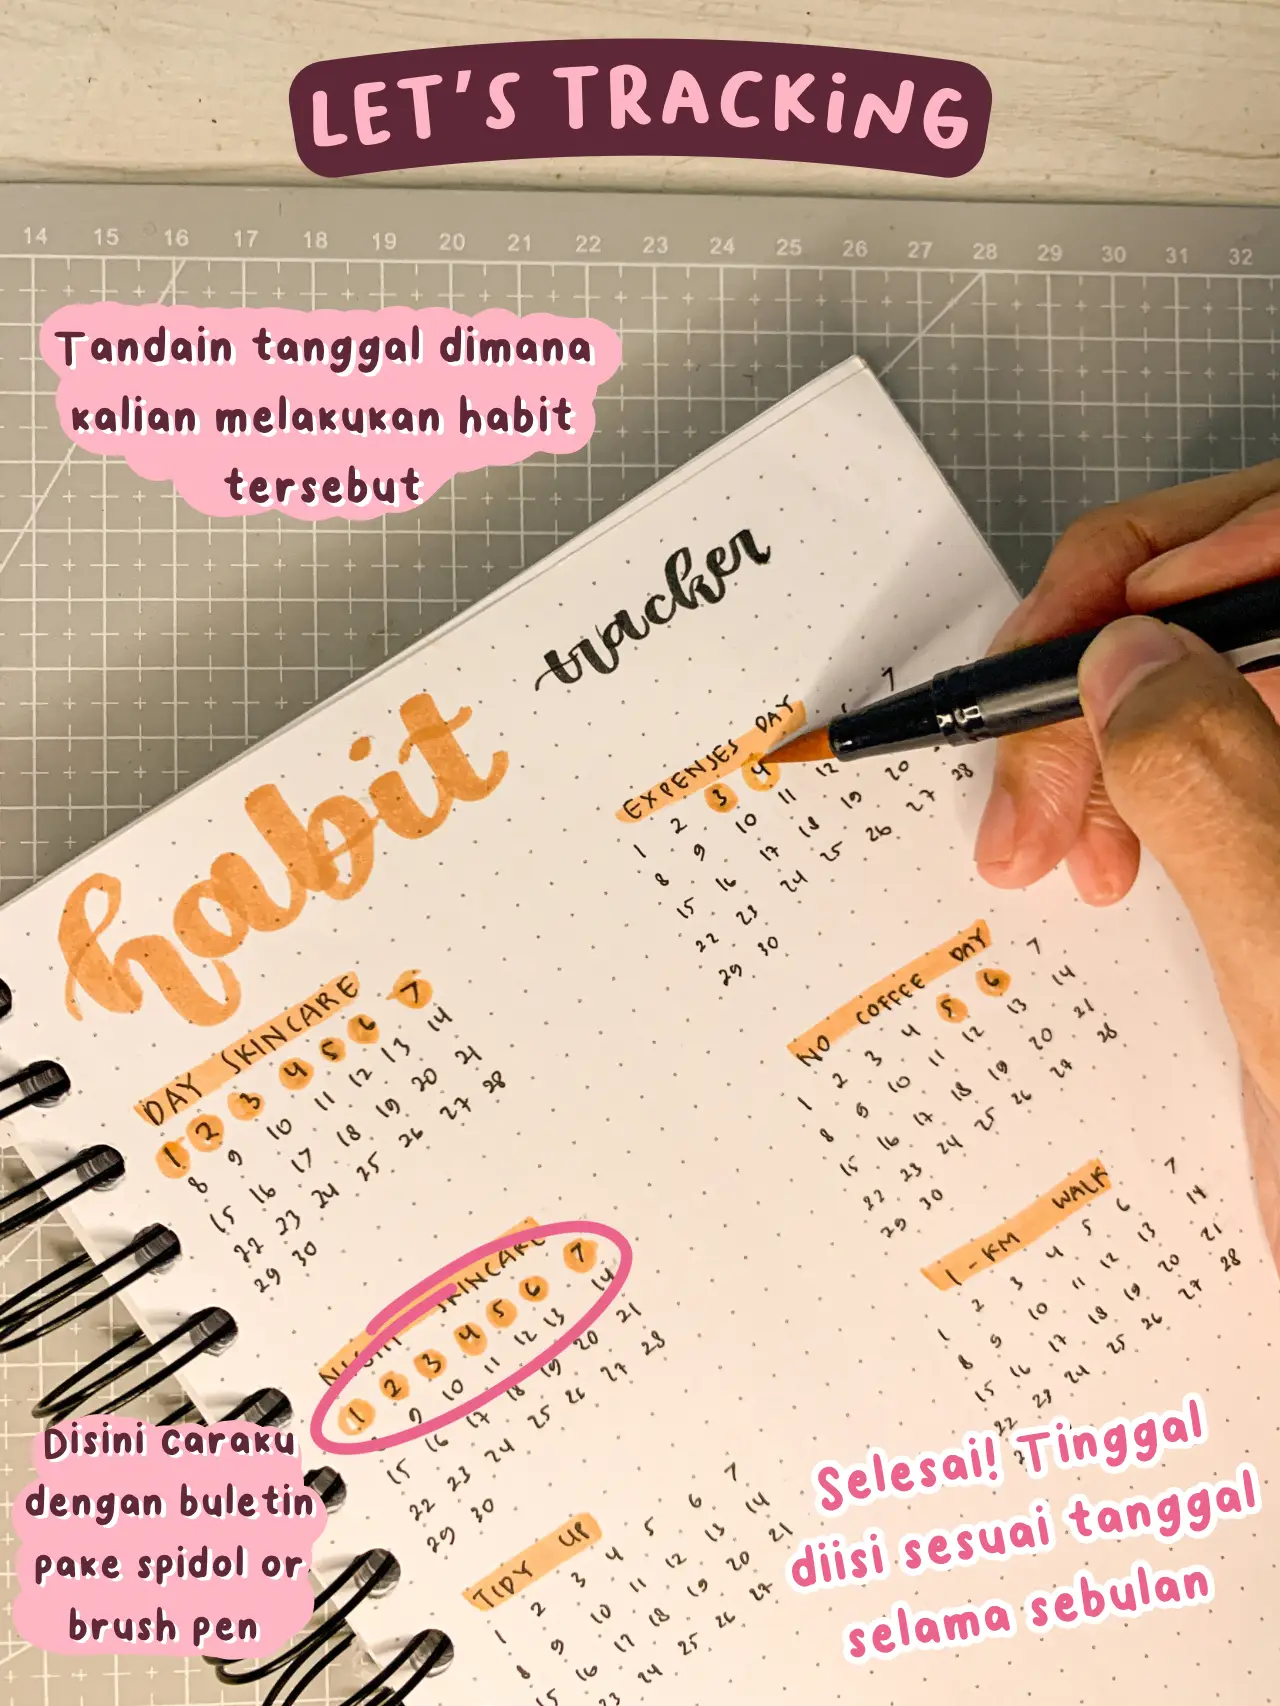 LET'S TRACKING
14 15 16 17 18 19 20 21 22 23 24 25 26 27 28 29 30 31 32
Tandain tanggal dimana
kalian melakukan habit
tersebut
habit
tracker
EXPENSES DAY
1 2 3 4 7
8 9 10 11 12
15 16 17 18 19 20
22 23 24 25 26 27 28
29 30
DAY SKINCARE
1 2 3 4 5 6 7
8 9 10 11 12 13 14
15 16 17 18 19 20 21
22 23 24 25 26 27 28
29 30
NO COFFEE DAY
1 2 3 4 5 6 7
8 9 10 11 12 13 14
15 16 17 18 19 20 21
22 23 24 25 26 27 28
29 30
NIGHT SKINCARE
1 2 3 4 5 6 7
9 10 11 12 13 14
15 16 17 18 19 20 21
22 23 24 25 26 27 28
29 30
1-KM WALK
1 2 3 4 5 6 7
8 9 10 11 12 13 14
15 16 17 18 19 20 21
22 23 24 25 26 27 28
TIDY UP
1 2 3 4 5 6 7
8 9 10 11 12 13 14
15 16 17 18 19 20 21
23 24 25 26 27
Disini caraku
dengan buletin
pake spidol or
brush pen
Selesai! Tinggal
diisi sesuai tanggal
selama sebulan